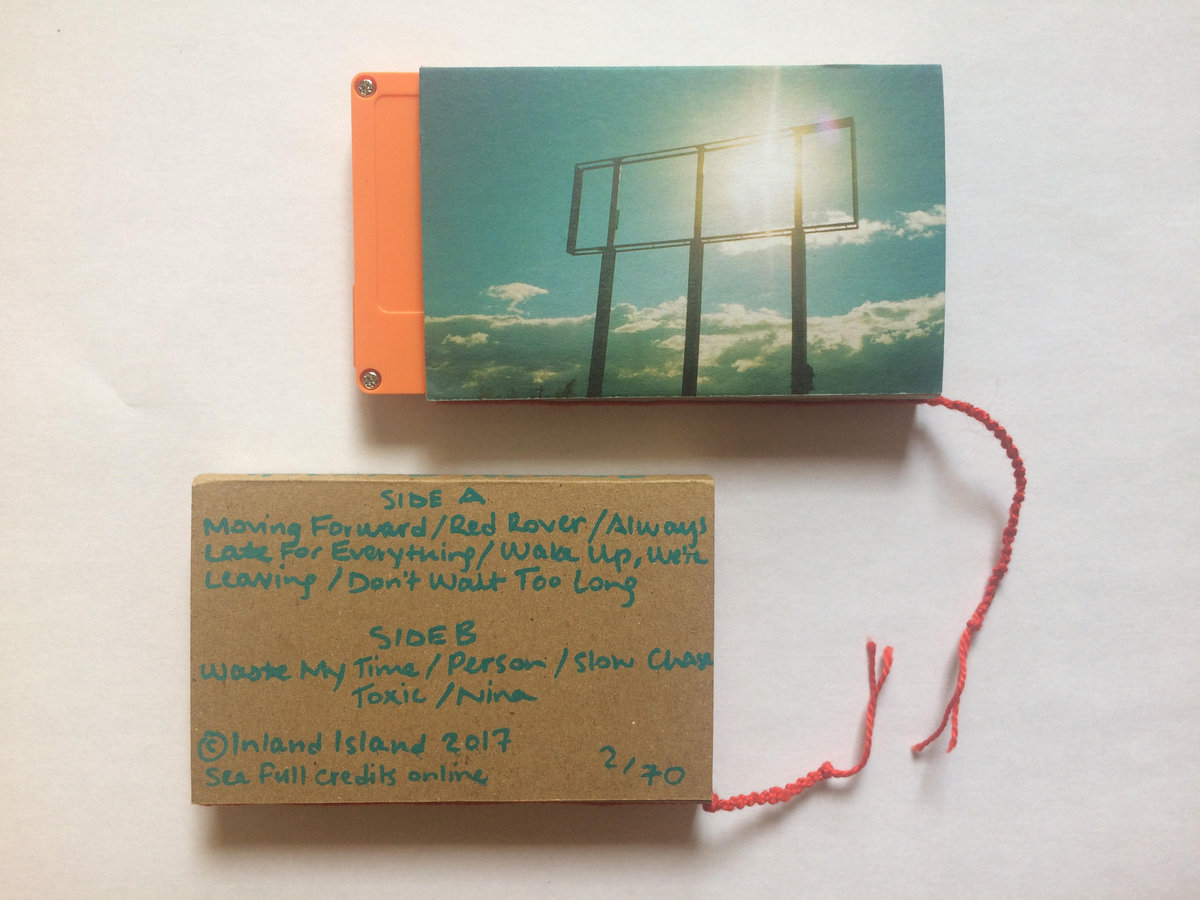 SIDE A
Moving Forward/Red Rover/Always
Late For Everything/Wake Up, We're
Leaving/Don't Wait Too Long
SIDE B
Waste My Time/Person/Slow Chase
Toxic/Nina
© Inland Island 2017
See Full credits online
2/70